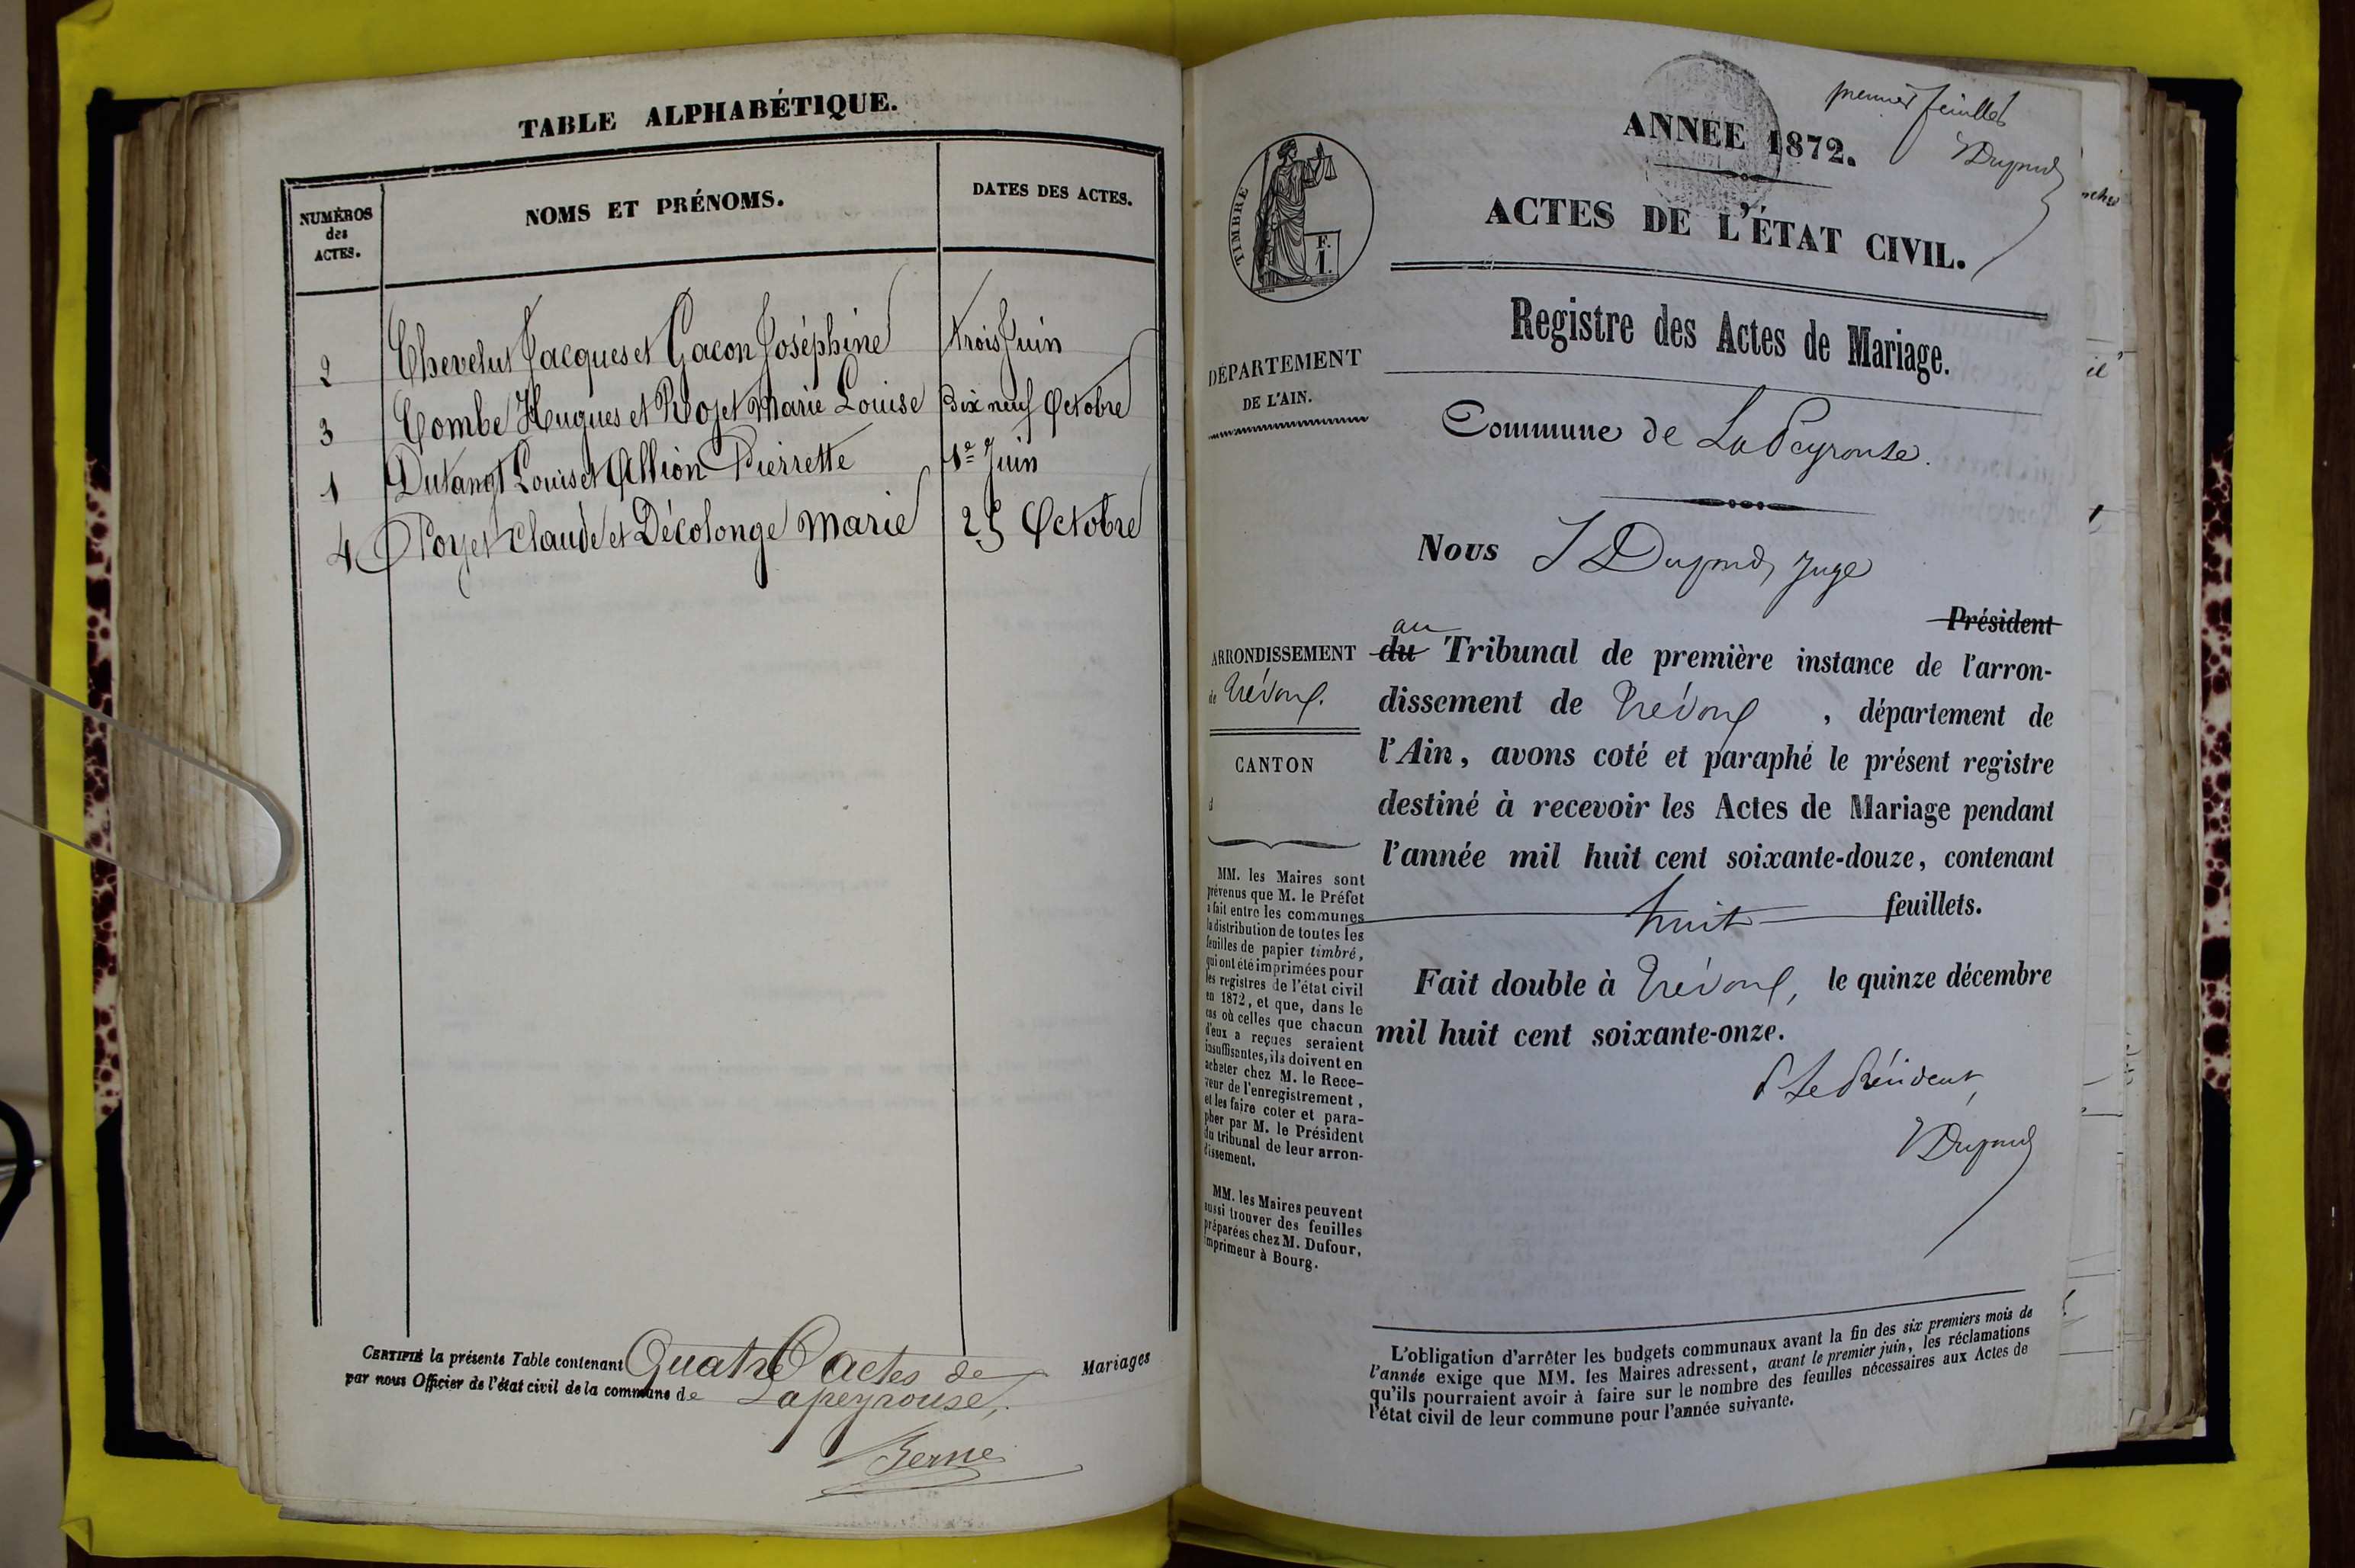 TABLE ALPHABÉTIQUE.
NUMÉROS
des
ACTES.
NOMS ET PRÉNOMS.
DATES DES ACTES.
2 Chevelut Jacques et Gacon Joséphine trois Juin
3 Combe Hugues et Rojet Marie Louise Dix neuf Octobre
1 Dutang Louis et Allion Pierrette 1er Juin
4 Poyet Claude et Décolonge Marie 25 Octobre
CERTIFIÉ la présente Table contenant Quatre actes de Mariages
par nous Officier de l'état civil de la commune de Lapeyrouse,
Berne
premier feuillet
ANNÉE 1872.
ACTES DE L'ÉTAT CIVIL.
TIMBRE
F.
I.
Registre des Actes de Mariage.
DÉPARTEMENT
DE L'AIN.
Commune de La Peyrouse.
Nous Juge
Président
au
ARRONDISSEMENT
de Trévoux.
CANTON
d
du Tribunal de première instance de l'arron-
dissement de Trévoux , département de
l'Ain, avons coté et paraphé le présent registre
destiné à recevoir les Actes de Mariage pendant
l'année mil huit cent soixante-douze, contenant
huit feuillets.
Fait double à Trévoux, le quinze décembre
mil huit cent soixante-onze.
P Le Président,
MM. les Maires sont
prévenus que M. le Préfet
a fait entre les communes
la distribution de toutes les
feuilles de papier timbré,
qui ont été imprimées pour
les registres de l'état civil
en 1872, et que, dans le
cas où celles que chacun
d'eux a reçues seraient
insuffisantes, ils doivent en
acheter chez M. le Rece-
veur de l'enregistrement,
et les faire coter et para-
pher par M. le Président
du tribunal de leur arron-
dissement.
MM. les Maires peuvent
aussi trouver des feuilles
préparées chez M. Dufour,
imprimeur à Bourg.
L'obligation d'arrêter les budgets communaux avant la fin des six premiers mois de
l'année exige que MM. les Maires adressent, avant le premier juin, les réclamations
qu'ils pourraient avoir à faire sur le nombre des feuilles nécessaires aux Actes de
l'état civil de leur commune pour l'année suivante.